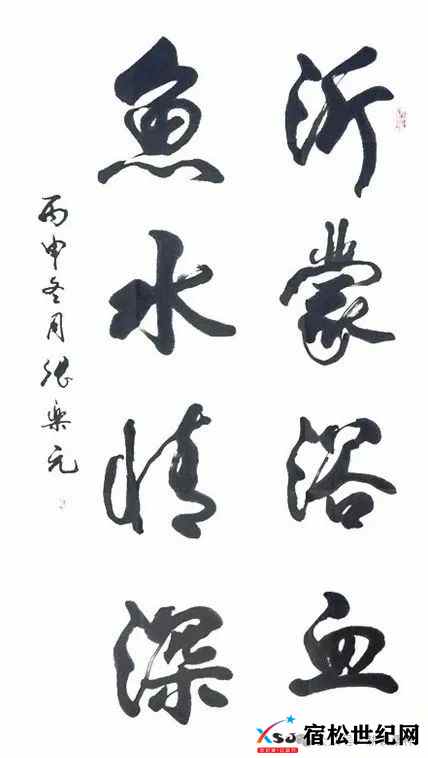 沂蒙浴血
魚水情深
丙申冬月張樂元
XSJ 宿松世纪网